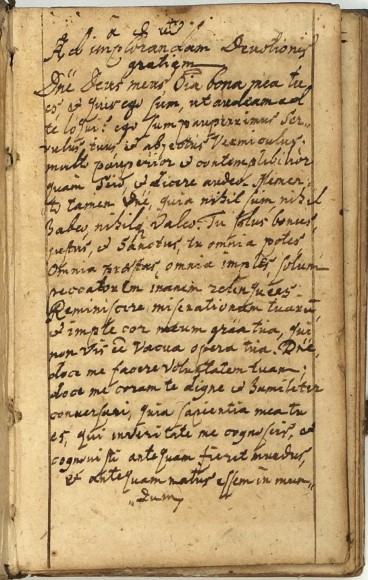 Ad implorandam Devotionis
gratiam
Dnē Deus meus Oīa bona mea tu
es et quis ego sum, ut audeam ad
te loqui? ego sum pauperrimus Ser-
vulus tuus et abjectus Vermiculus:
multo pauperior et contemptibilior
quam Scio, et dicere audeo. Memen-
to tamen Dnē, quia nihil sum nihil
habeo, nihilq valeo. Tu solus bonus,
justus, et Sanctus, tu omnia potes
Omnia præstas, omnia imples, solum
peccatorem inanem relinquens.
Reminiscere miserationum tuarum,
et imple cor meum gratia tua, qui
non vis ēē vacua opera tua. Dnē,
doce me facere voluntatem tuam;
doce me coram te digne et humiliter
conversari, quia sapientia mea tu
es, qui in veritate me cognoscis, et
cognovisti antequam fieret mundus,
et antequam natus essem in mun-
dum